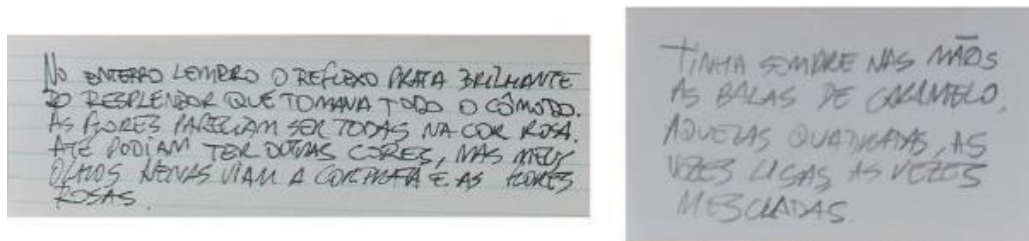 NO ENTERRO LEMBRO O REFLEXO PRATA BRILHANTE
DO RESPLENDOR QUE TOMAVA TODO O CÔMODO.
AS FLORES PARECIAM SER TODAS NA COR ROSA.
ATÉ PODIAM TER OUTRAS CORES, MAS MEUS
OLHOS APENAS VIAM A COR PRATA E AS FLORES
ROSAS.
TINHA SEMPRE NAS MÃOS
AS BALAS DE CARAMELO,
AQUELAS QUADRADAS, AS
VEZES LISAS AS VEZES
MESCLADAS